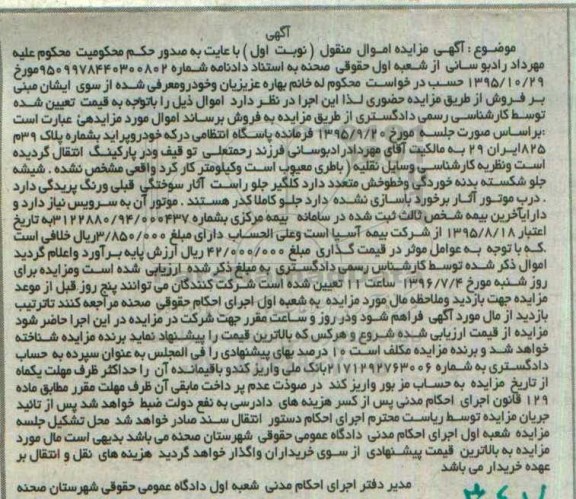 آگهی
موضوع : آگهی مزایده اموال منقول ( نوبت اول ) با عایت به صدور حکم محکومیت محکوم علیه
مهرداد رادبو سانی از شعبه اول حقوقی صحنه به استناد دادنامه شماره ۹۵۰۹۹۷۸۴۴۰۳۰۰۸۰۲مورخ
۱۳۹۵/۱۰/۲۹ حسب در خواست محکوم له خانم بهاره عزیزیان وخودرومعرفی شده از سوی ایشان مبنی
بر فروش از طریق مزایده حضوری لذا این اجرا در نظر دارد اموال ذیل را باتوجه به قیمت تعیین شده
توسط کارشناسی رسمی دادگستری از طریق مزایده به فروش برساند اموال مورد مزایدهی عبارت است
:براساس صورت جلسه مورخ ۱۳۹۵/۹/۲۰ فرمانده پاسگاه انتظامی درکه خودروپراید بشماره پلاک ۳۹م
۸۲۵ایران ۲۹ به مالکیت آقای مهردادرادبوسانی فرزند رحمتعلی تو قیف ودر پارکینگ انتقال گردیده
است ونظریه کارشناسی وسایل نقلیه ( باطری معیوب است وکیلومتر کار کرد واقعی مشخص نشده . شیشه
جلو شکسته بدنه خوردگی وخطوخش متعدد دارد گلگیر جلو راست آثار سوختگی قبلی ورنگ پریدگی دارد
. درب موتور آثار برخورد بازسازی نشده دارد جلو کاملا کدر هستند . موتور آن به سرویس نیاز دارد و
دارایآخرین بیمه شخص ثالث ثبت شده در سامانه بیمه مرکزی بشماره ۳۱۲۲۸۸۰/۹۴/۰۰۰۴۳۷به تاریخ
اعتبار ۱۳۹۵/۸/۱۸ از شرکت بیمه آسیا است وعلی الحساب دارای مبلغ ۳/۸۵۰/۰۰۰ریال خلافی است
.که با توجه به عوامل موثر در قیمت گذاری مبلغ ۴۲/۰۰۰/۰۰۰ ریال ارزش پایه برآورد واعلام گردید
اموال ذکر شده توسط کارشناس رسمی دادگستری به مبلغ ذکر شده ارزیابی شده است ومزایده برای
روز شنبه مورخ ۱۳۹۶/۷/۴ ساعت ۱۱ تعیین شده است شرکت کنندگان می توانند پنج روز قبل از موعد
مزایده جهت بازدید وملاحظه مال مورد مزایده به شعبه اول اجرای احکام حقوقی صحنه مراجعه کنند تاترتیب
بازدید از مال مورد آگهی فراهم شود ودر روز و ساعت مقرر جهت شرکت در مزایده در این اجرا حاضر شود
مزایده از قیمت ارزیابی شده شروع و هرکس که بالاترین قیمت را پیشنهاد نماید برنده مزایده شناخته
خواهد شد و برنده مزایده مکلف است ۱۰ درصد بهای پیشنهادی را فی المجلس به عنوان سپرده به حساب
دادگستری به شماره ۲۱۷۱۲۹۲۷۶۳۰۰۶بانک ملی واریز کندو باقیمانده آن را حداکثر ظرف مهلت یکماه
از تاریخ مزایده به حساب مز بور واریز کند در صوذت عدم پر داخت مابقی آن ظرف مهلت مقرر مطابق ماده
۱۲۹ قانون اجرای احکام مدنی پس از کسر هزینه های دادرسی به نفع دولت ضبط خواهد شد پس از تائید
جریان مزایده توسط ریاست محترم اجرای احکام دستور انتقال سند صادر خواهد شد محل تشکیل جلسه
مزایده شعبه اول اجرای احکام مدنی دادگاه عمومی حقوقی شهرستان صحنه می باشد بدیهی است مال مورد
مزایده به بالاترین قیمت پیشنهادی از سوی خریداران واگذار خواهد گردید هزینه های نقل و انتقال بر
عهده خریدار می باشد
مدیر دفتر اجرای احکام مدنی شعبه اول دادگاه عمومی حقوقی شهرستان صحنه